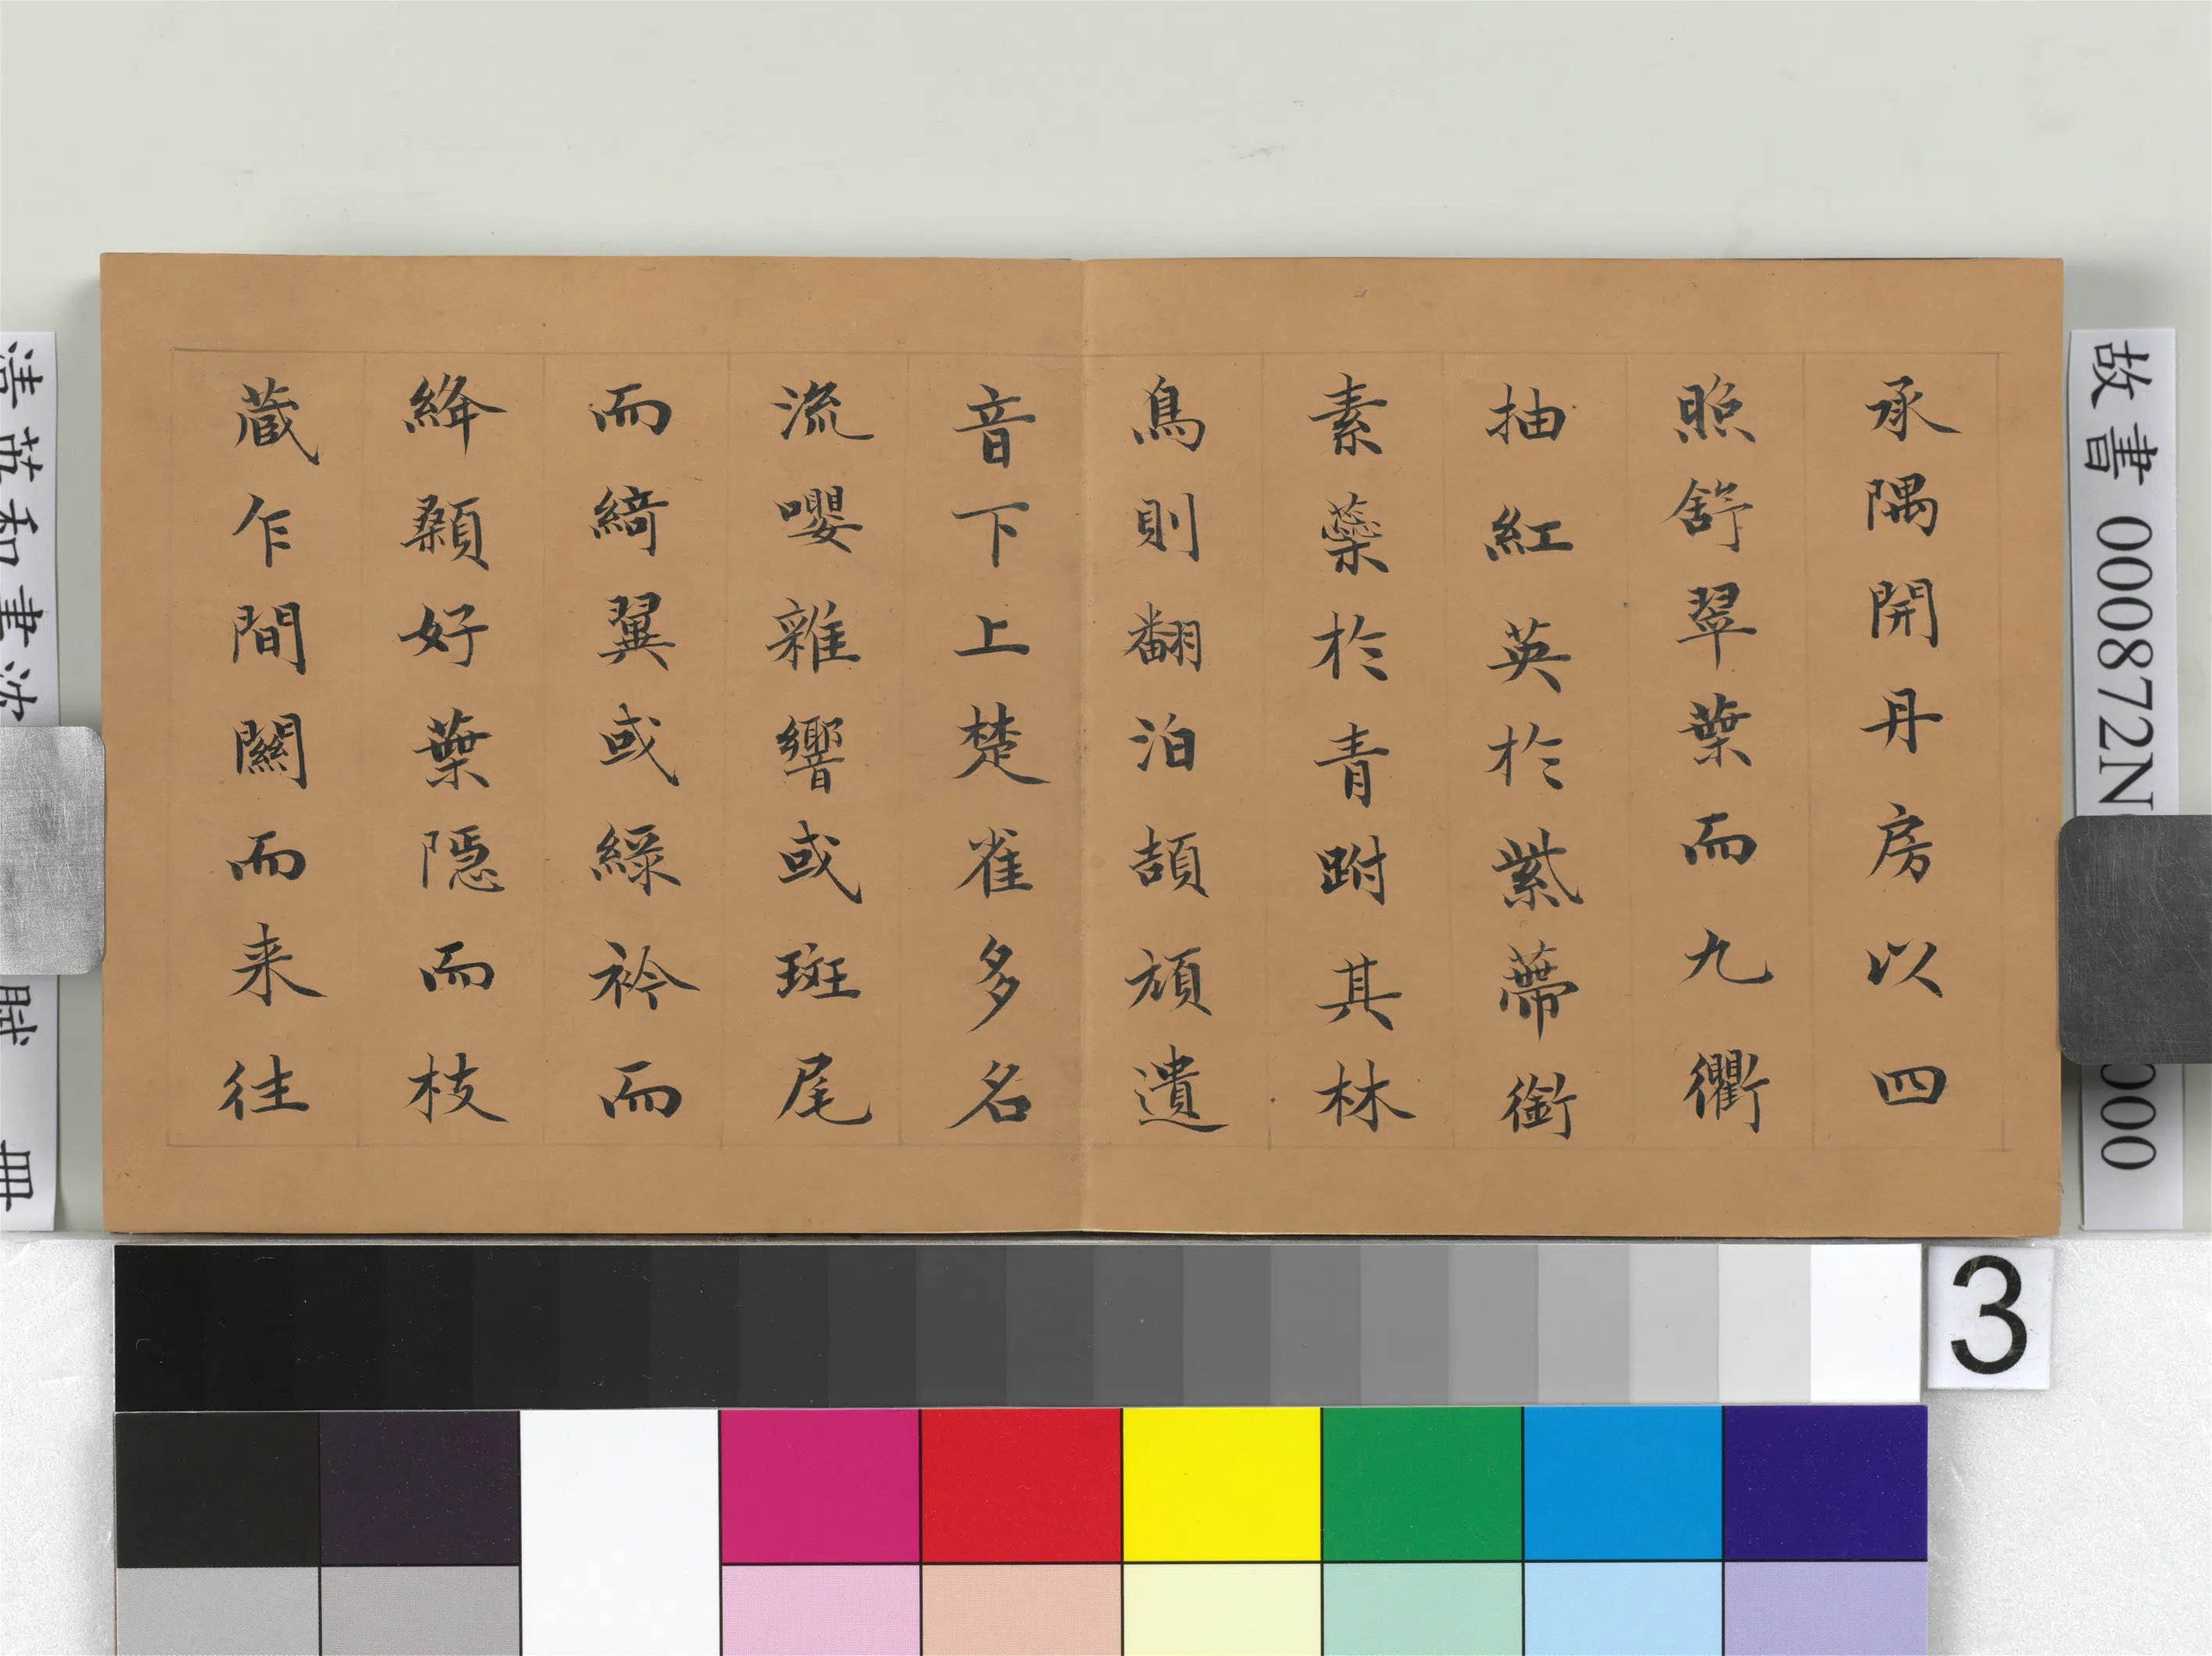 承隅開丹房以四
照舒翠葉而九衢
抽紅英於紫蔕銜
素蘂於青跗其林
鳥則翻泊頡頏遺
音下上楚雀多名
流嚶雜響或班尾
而綺翼或綠衿而
絳顙好葉隱而枝
蔵乍間關而来往
故書000872N
000
清英和書沈
賦 冊
3